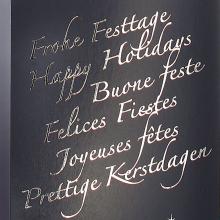 Frohe Festtage
Happy Holidays
Buone feste
Felices Fiestes
Joyeuses fêtes
Prettige Kerstdagen